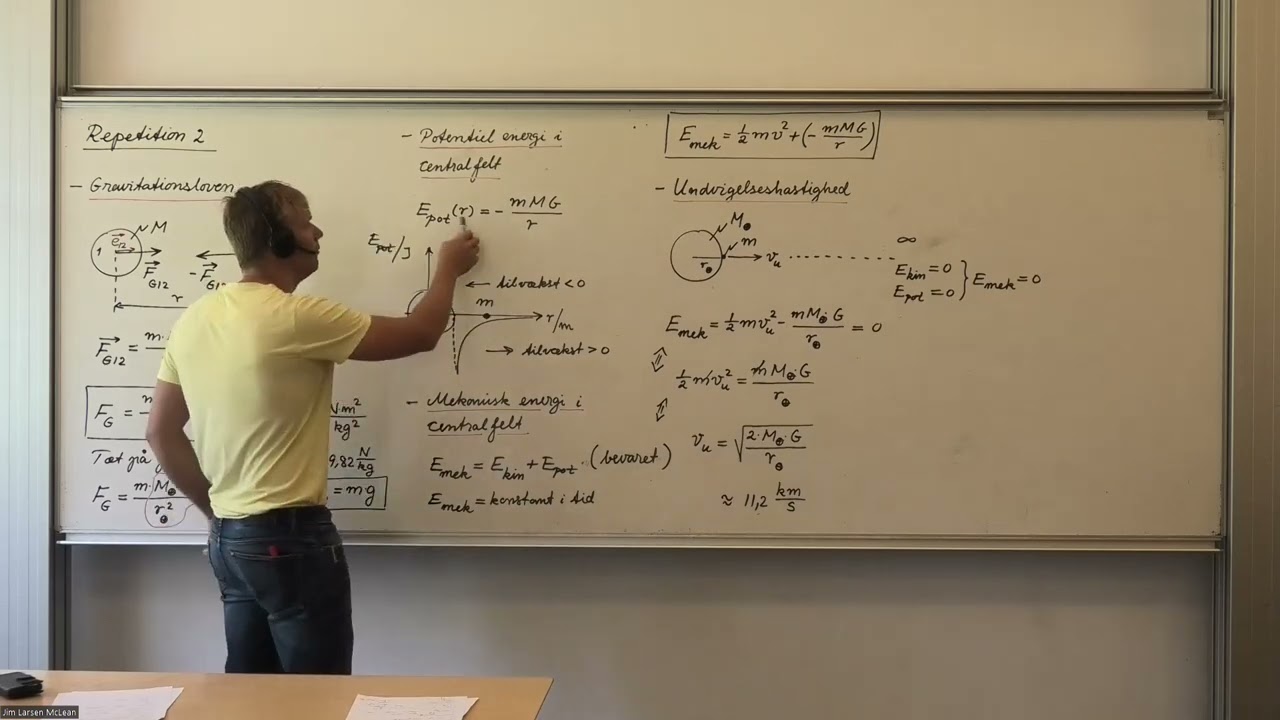 Repetition 2
- Gravitationsloven
M
1
e⃗₁₂
F⃗_G12
-F⃗_G12
r
F⃗_G12 = m·
F_G =
N·m²/kg²
Tæt på
9,82 N/kg
F_G = m·M_⊕/r_⊕²
= mg
- Potentiel energi i
centralfelt
E_pot(r) = - mMG/r
E_pot/J
← tilvækst < 0
m
r/m
→ tilvækst > 0
- Mekanisk energi i
centralfelt
E_mek = E_kin + E_pot. (bevaret)
E_mek = konstant i tid
E_mek = ½mv² + (- mMG/r)
- Undvigelseshastighed
M_⊕
m
r_⊕
v_u
∞
E_kin = 0
E_pot = 0 } E_mek = 0
E_mek = ½mv_u² - mM_⊕·G/r_⊕ = 0
⇕
½mv_u² = mM_⊕·G/r_⊕
⇕
v_u = √(2·M_⊕·G/r_⊕)
≈ 11,2 km/s
Jim Larsen McLean